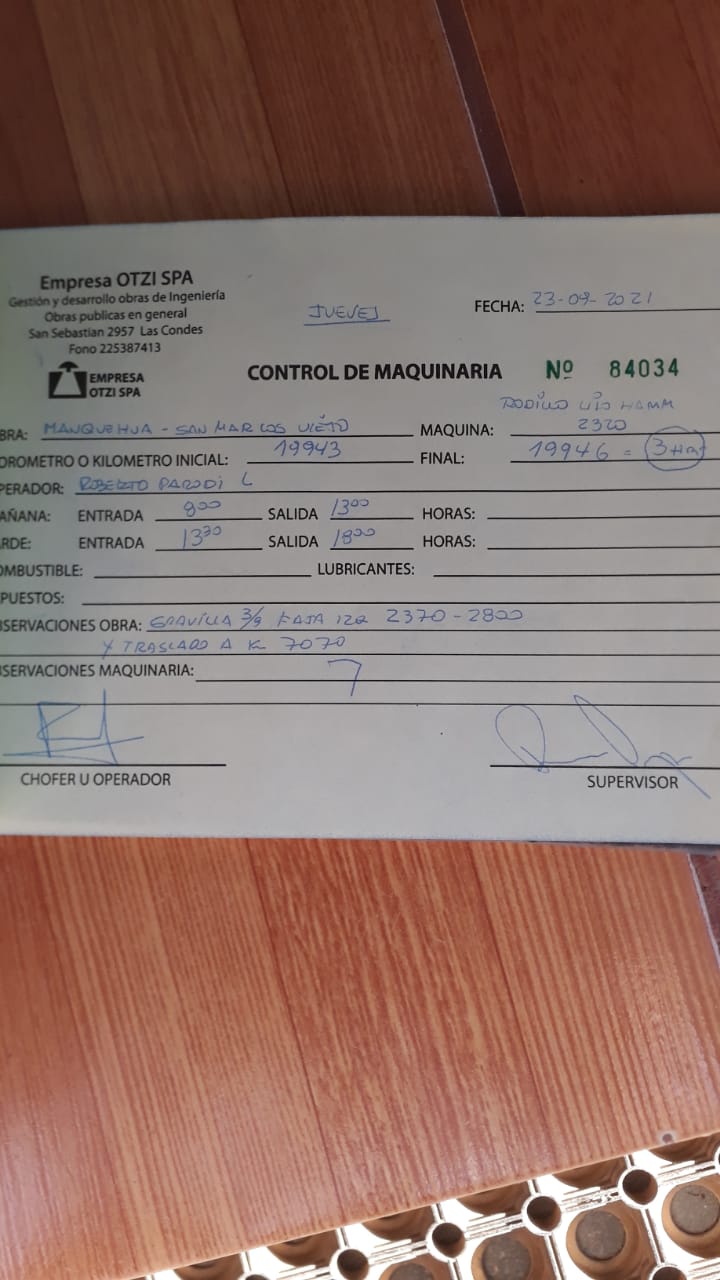 Empresa OTZI SPA
Gestión y desarrollo obras de Ingeniería
Obras publicas en general
San Sebastian 2957 Las Condes
Fono 225387413
EMPRESA
OTZI SPA
JUEVES
FECHA: 23-09-2021
CONTROL DE MAQUINARIA Nº 84034
RODILLO HAMM
BRA: MANQUEHUA - SAN MARCOS VIEJO MAQUINA: 2320
OROMETRO O KILOMETRO INICIAL: 19943 FINAL: 19946 = 3 HRS
PERADOR: ROBERTO PARODI L
AÑANA: ENTRADA 800 SALIDA 1300 HORAS:
ARDE: ENTRADA 1330 SALIDA 1800 HORAS:
OMBUSTIBLE: LUBRICANTES:
PUESTOS:
SERVACIONES OBRA: GRAVILLA 3/8 FAJA IZQ 2370 - 2800
Y TRASLADO A K 7070
SERVACIONES MAQUINARIA:
CHOFER U OPERADOR SUPERVISOR